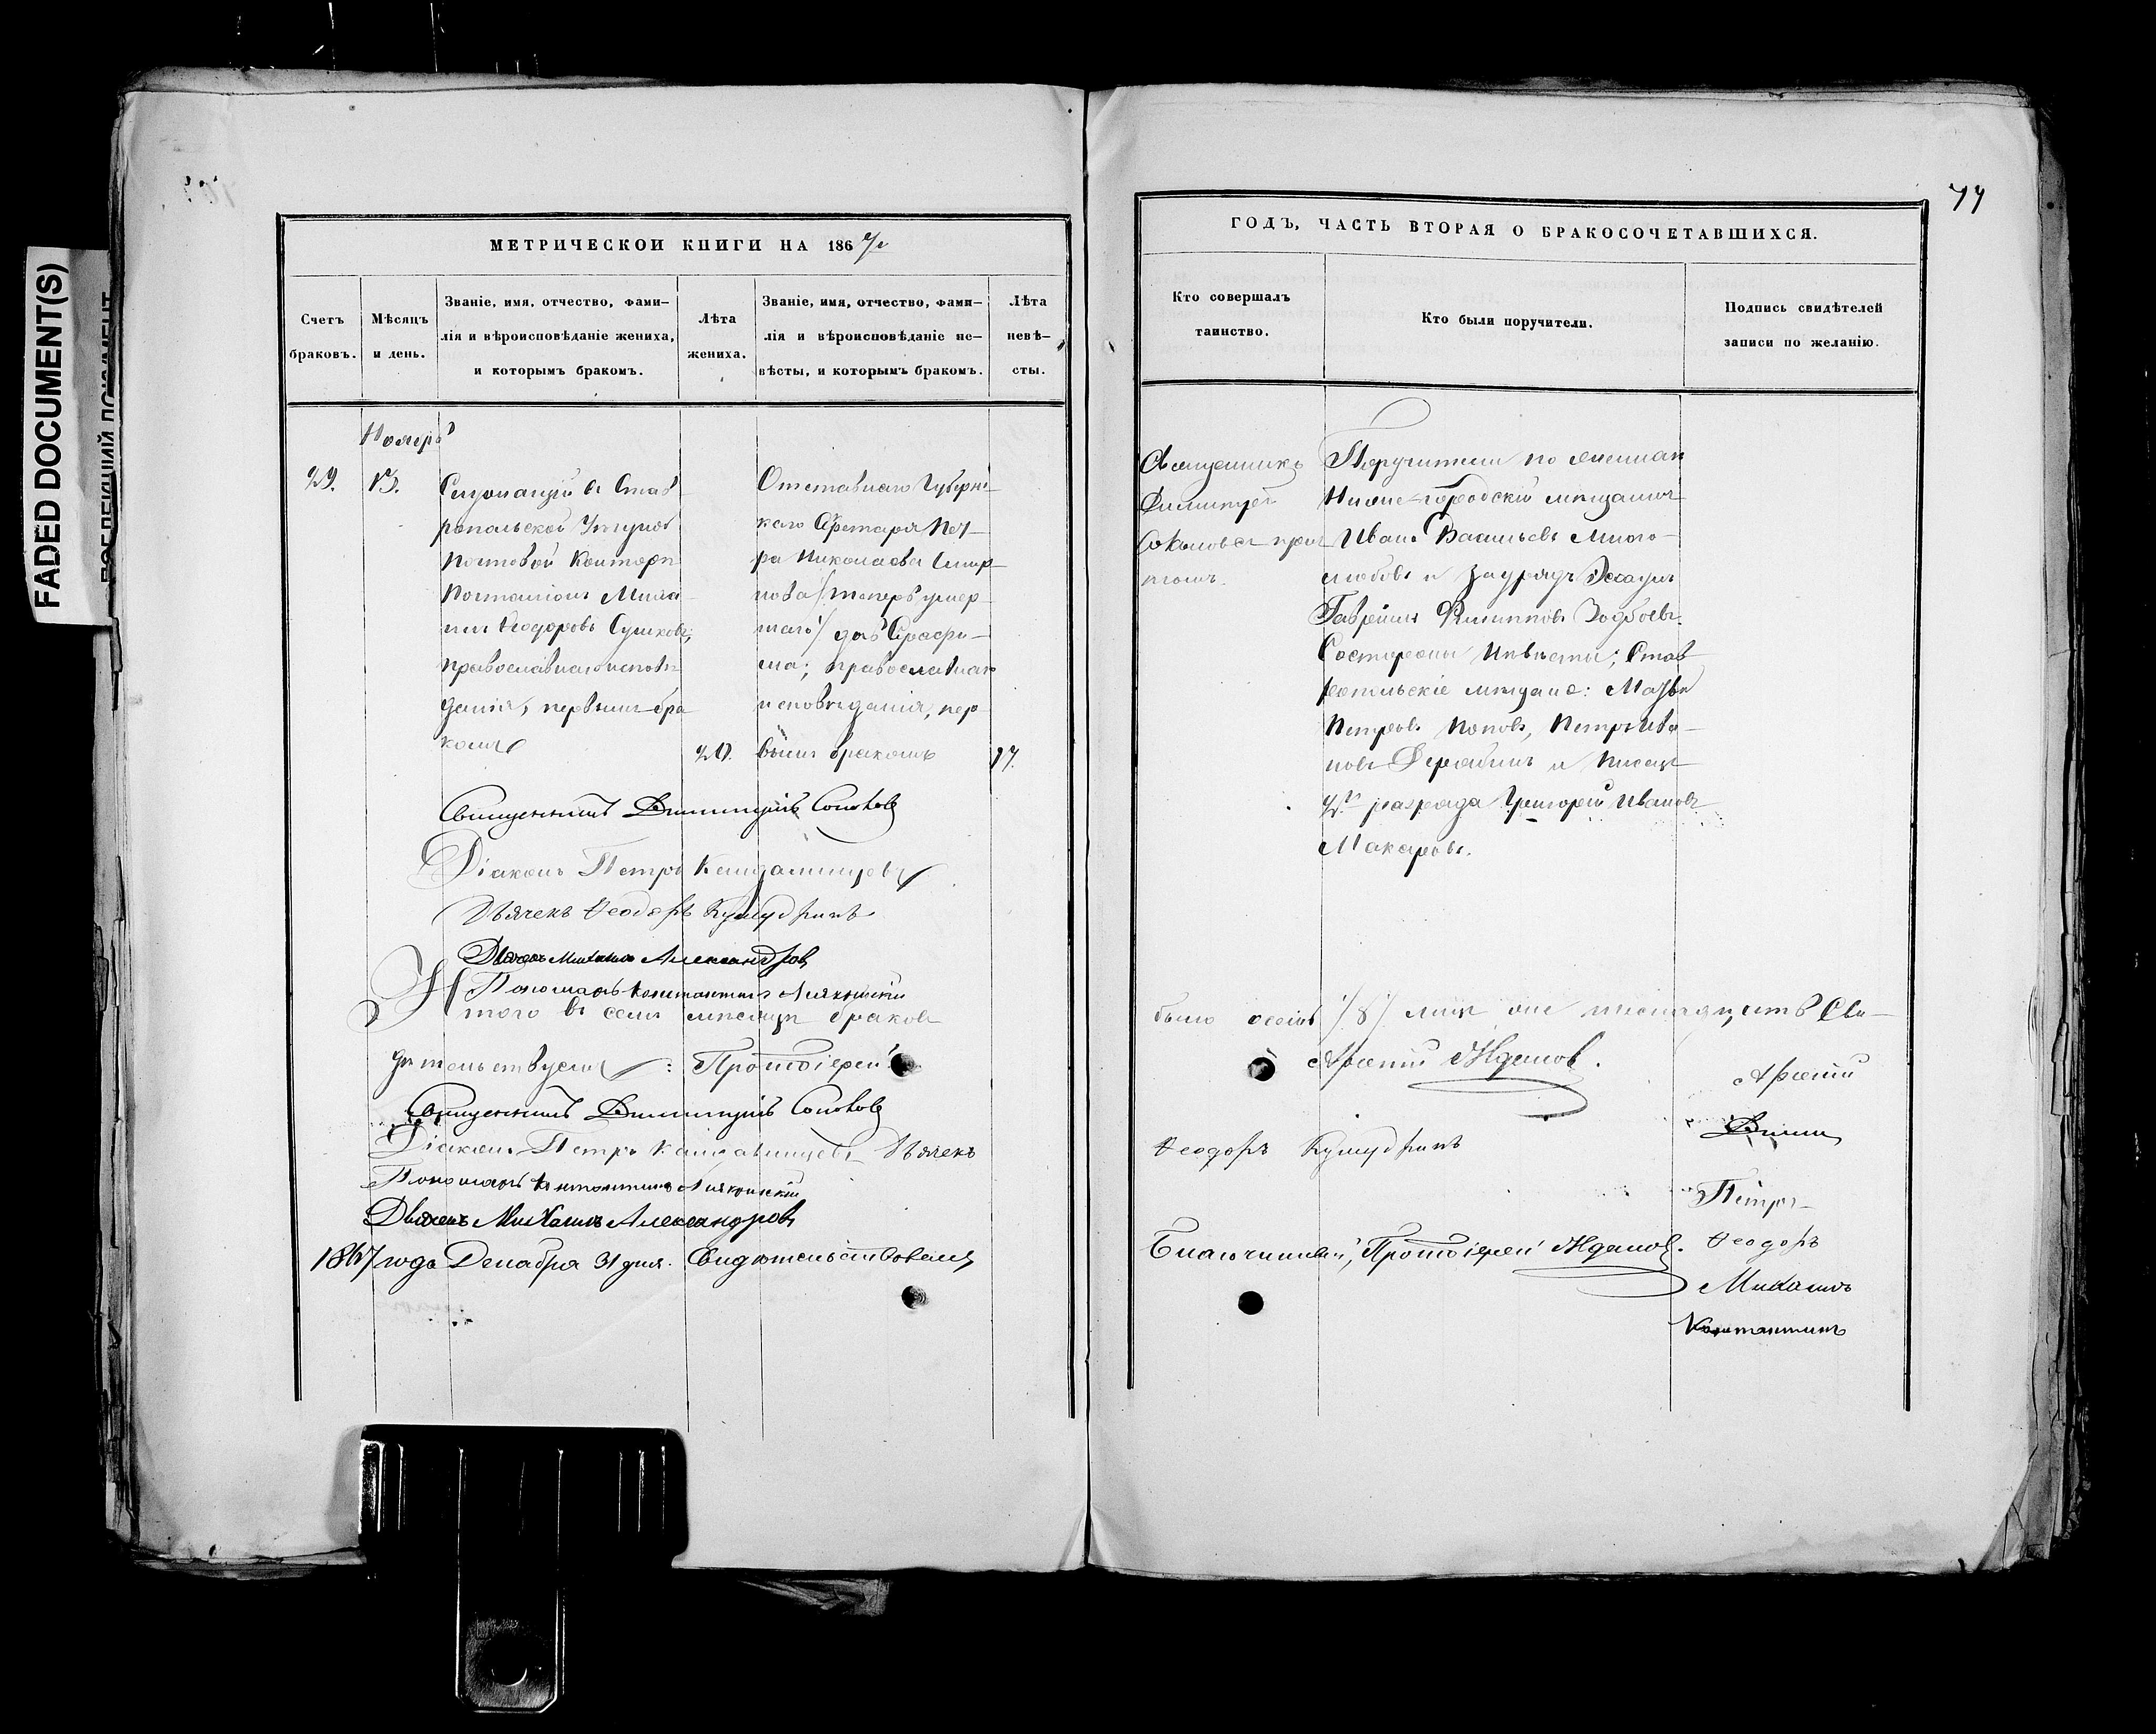 FADED DOCUMENT(S)
МЕТРИЧЕСКОЙ КНИГИ НА 1867
Счетъ браковъ.
Мѣсяцъ и день.
Званіе, имя, отчество, фами-
лія и вѣроисповѣданіе жениха,
и которымъ бракомъ.
Лѣта жениха.
Званіе, имя, отчество, фами-
лія и вѣроисповѣданіе не-
вѣсты, и которымъ бракомъ.
Лѣта невѣ-
сты.
Ноябрь
29.
13.
Служащій въ Став-
ропольской
Почтовой Конторѣ
Почталіонъ Миха-
илъ Ѳеодоровъ Сушковъ,
православнаго исповѣ-
данія, первымъ бра-
комъ
20.
Отставнаго Губернс-
каго Секретаря Пет-
ра Николаева Смир-
нова /теперь умер-
шаго/ дочь Серафи-
ма; православнаго
исповѣданія, пер-
вымъ бракомъ
17.
Священникъ Димитрій Соколовъ
Діаконъ Петръ
Дьячекъ Ѳеодоръ
Дьячекъ Михаилъ Александровъ
Пономарь Константинъ
Итого въ семъ мѣсяцѣ браковъ
дѣтельствуемъ: Протоіерей
Священникъ Димитрій Соколовъ
Діаконъ Петръ Дьячекъ
Пономарь Константинъ
Дьячекъ Михаилъ Александровъ
1867 года Декабря 31 дня. Свидѣтельствовалъ
77
ГОДЪ, ЧАСТЬ ВТОРАЯ О БРАКОСОЧЕТАВШИХСЯ.
Кто совершалъ
таинство.
Кто были поручители.
Подпись свидѣтелей
записи по желанію.
Священникъ
Димитрій
Соколовъ съ прич-
томъ.
Поручители по женихѣ
Ниже-городскій мѣщанинъ
Иванъ Васильевъ Много-
любовъ и Зауряд Эсаулъ
Гаврiилъ Филипповъ
Состороны Невѣсты; Став-
ропольскіе мѣщане: Матвѣй
Петровъ Поповъ, Петръ Ива-
новъ Дерябинъ и Писецъ
2го разряда Григорій Ивановъ
Макаровъ.
было восемь /8/ Сви-
Арсеній Ждановъ.
Арсеній
Дими
Ѳеодоръ
Петръ
Благочинный, Протоіерей Ждановъ.
Ѳеодоръ
Михаилъ
Константинъ